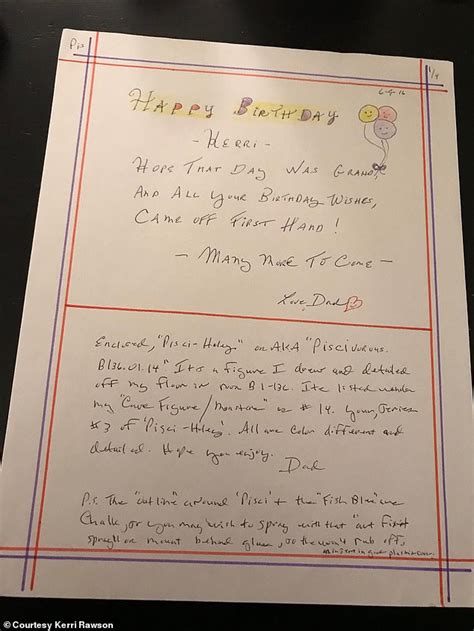 6-9-16
HAPPY BIRTHDAY
- KERRI -
HOPE THAT DAY WAS GRAND,
AND ALL YOUR BIRTHDAY WISHES,
CAME OFF FIRST HAND!
- MANY MORE TO COME -
Love, Dad
Enclosed, "Pisci-Holey" or AKA "Piscivorous.
B136.01.14" It's a figure I drew and detailed
off my floor in room B1-136. Its listed under
my "Cave Figure/Monsters" as # 14. your, Series
#3 of 'Pisci-Holey'. All are color different and
detailed. Hope you enjoy.
Dad
P.S. The "out line" around 'Pisci' + the "Fish Blue" are
Chalk, or you may wish to spray with that "art
spray" or mount behind glass, so the won't rub off,
© Courtesy Kerri Rawson